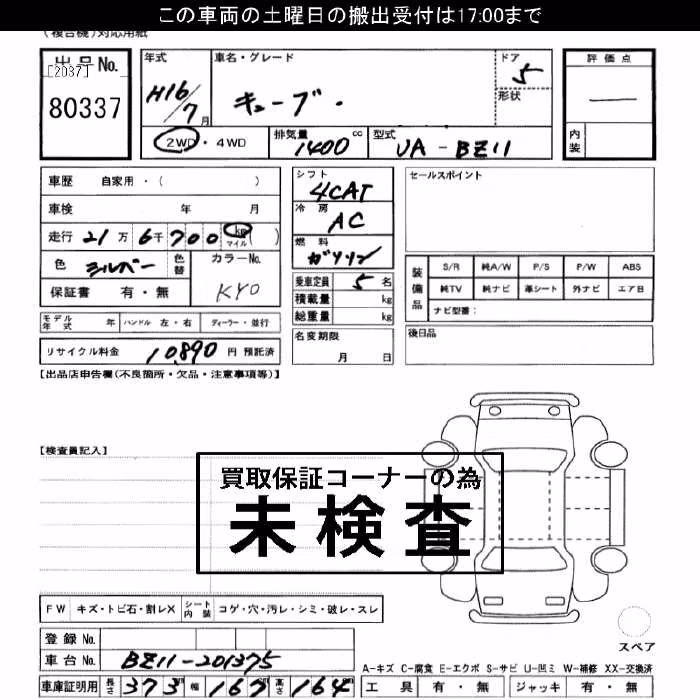 この車両の土曜日の搬出受付は17:00まで
(複合機)対応用紙
出品No.
[2037]
80337
年式
H16/7月
車名・グレード
キューブ.
ドア
5
形状
評価点
―
内装
2WD・4WD
排気量
1400cc
型式
UA-BZ11
車歴 自家用・( )
車検 年 月
走行 21万6千700 km マイル ( )
色 シルバー 色替 カラーNo. KY0
保証書 有・無
シフト
4CAT
冷房
AC
燃料
ガソリン
乗車定員 5名
積載量 kg
総重量 kg
セールスポイント
装備品
S/R 純A/W P/S P/W ABS
純TV 純ナビ 革シート 外ナビ エア日
ナビ型番:( )
モデル年式 年 ハンドル 左・右 ディーラー・並行
リサイクル料金 10,890円 預託済
名変期限
月 日
後日品
【出品店申告欄(不良箇所・欠品・注意事項等)】
【検査員記入】
買取保証コーナーの為
未検査
FW キズ・トビ石・割レX シート内装 コゲ・穴・汚レ・シミ・破レ・スレ
スペア
登録No.
車台No. BZ11-201375
A-キズ C-腐食 E-エクボ S-サビ U-凹ミ W-補修 XX-交換済
車庫証明用 長さ373 幅167 高さ164cm
工具 有・無 ジャッキ 有・無